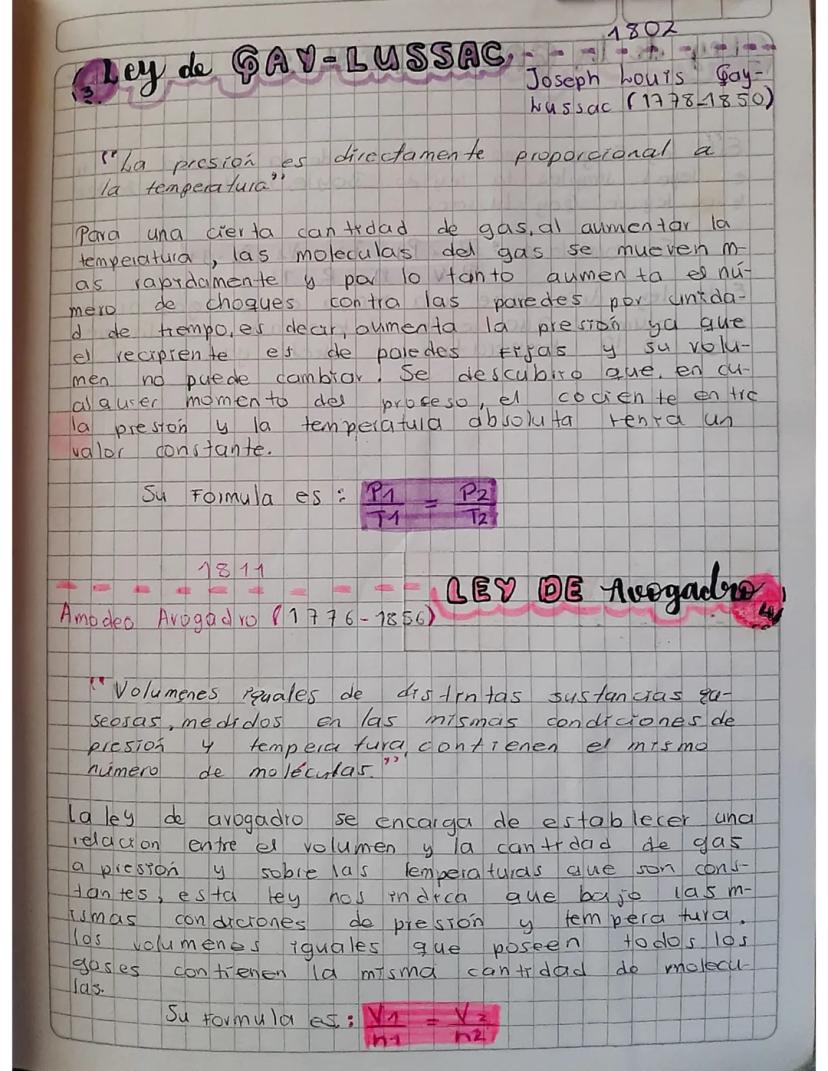 1802
3 Ley de GAY-LUSSAC
Joseph Louis Gay-
Lussac (1778-1850)
"La presion es directamente proporcional a
la temperatura"
Para una cierta cantidad de gas, al aumentar la
temperatura, las moleculas del gas se mueven m-
as rapidamente y por lo tanto aumenta el nú-
mero de choques contra las paredes por unida-
d de tiempo, es decir, aumenta la presión ya que
el recipiente es de paredes fijas y su volu-
men no puede cambiar. Se descubiro que, en cu-
alquier momento del proceso, el cociente entre
la presión y la temperatura absoluta tenía un
valor constante.
Su Formula es: P1/T1 = P2/T2
1811
LEY DE Avogadro 4
Amadeo Avogadro (1776-1856)
"Volumenes iguales de distintas sustancias ga-
seosas, medidos en las mismas condiciones de
presión y temperatura, contienen el mismo
número de moléculas."
La ley de avogadro se encarga de establecer una
relacion entre el volumen y la cantidad de gas
a presión y sobre las temperaturas que son cons-
tantes, esta ley nos indica que bajo las m-
ismas condiciones de presión y temperatura.
los volumenes iguales que poseen todos los
gases contienen la misma cantidad de molecu-
las.
Su formula es: V1/n1 = V2/n2